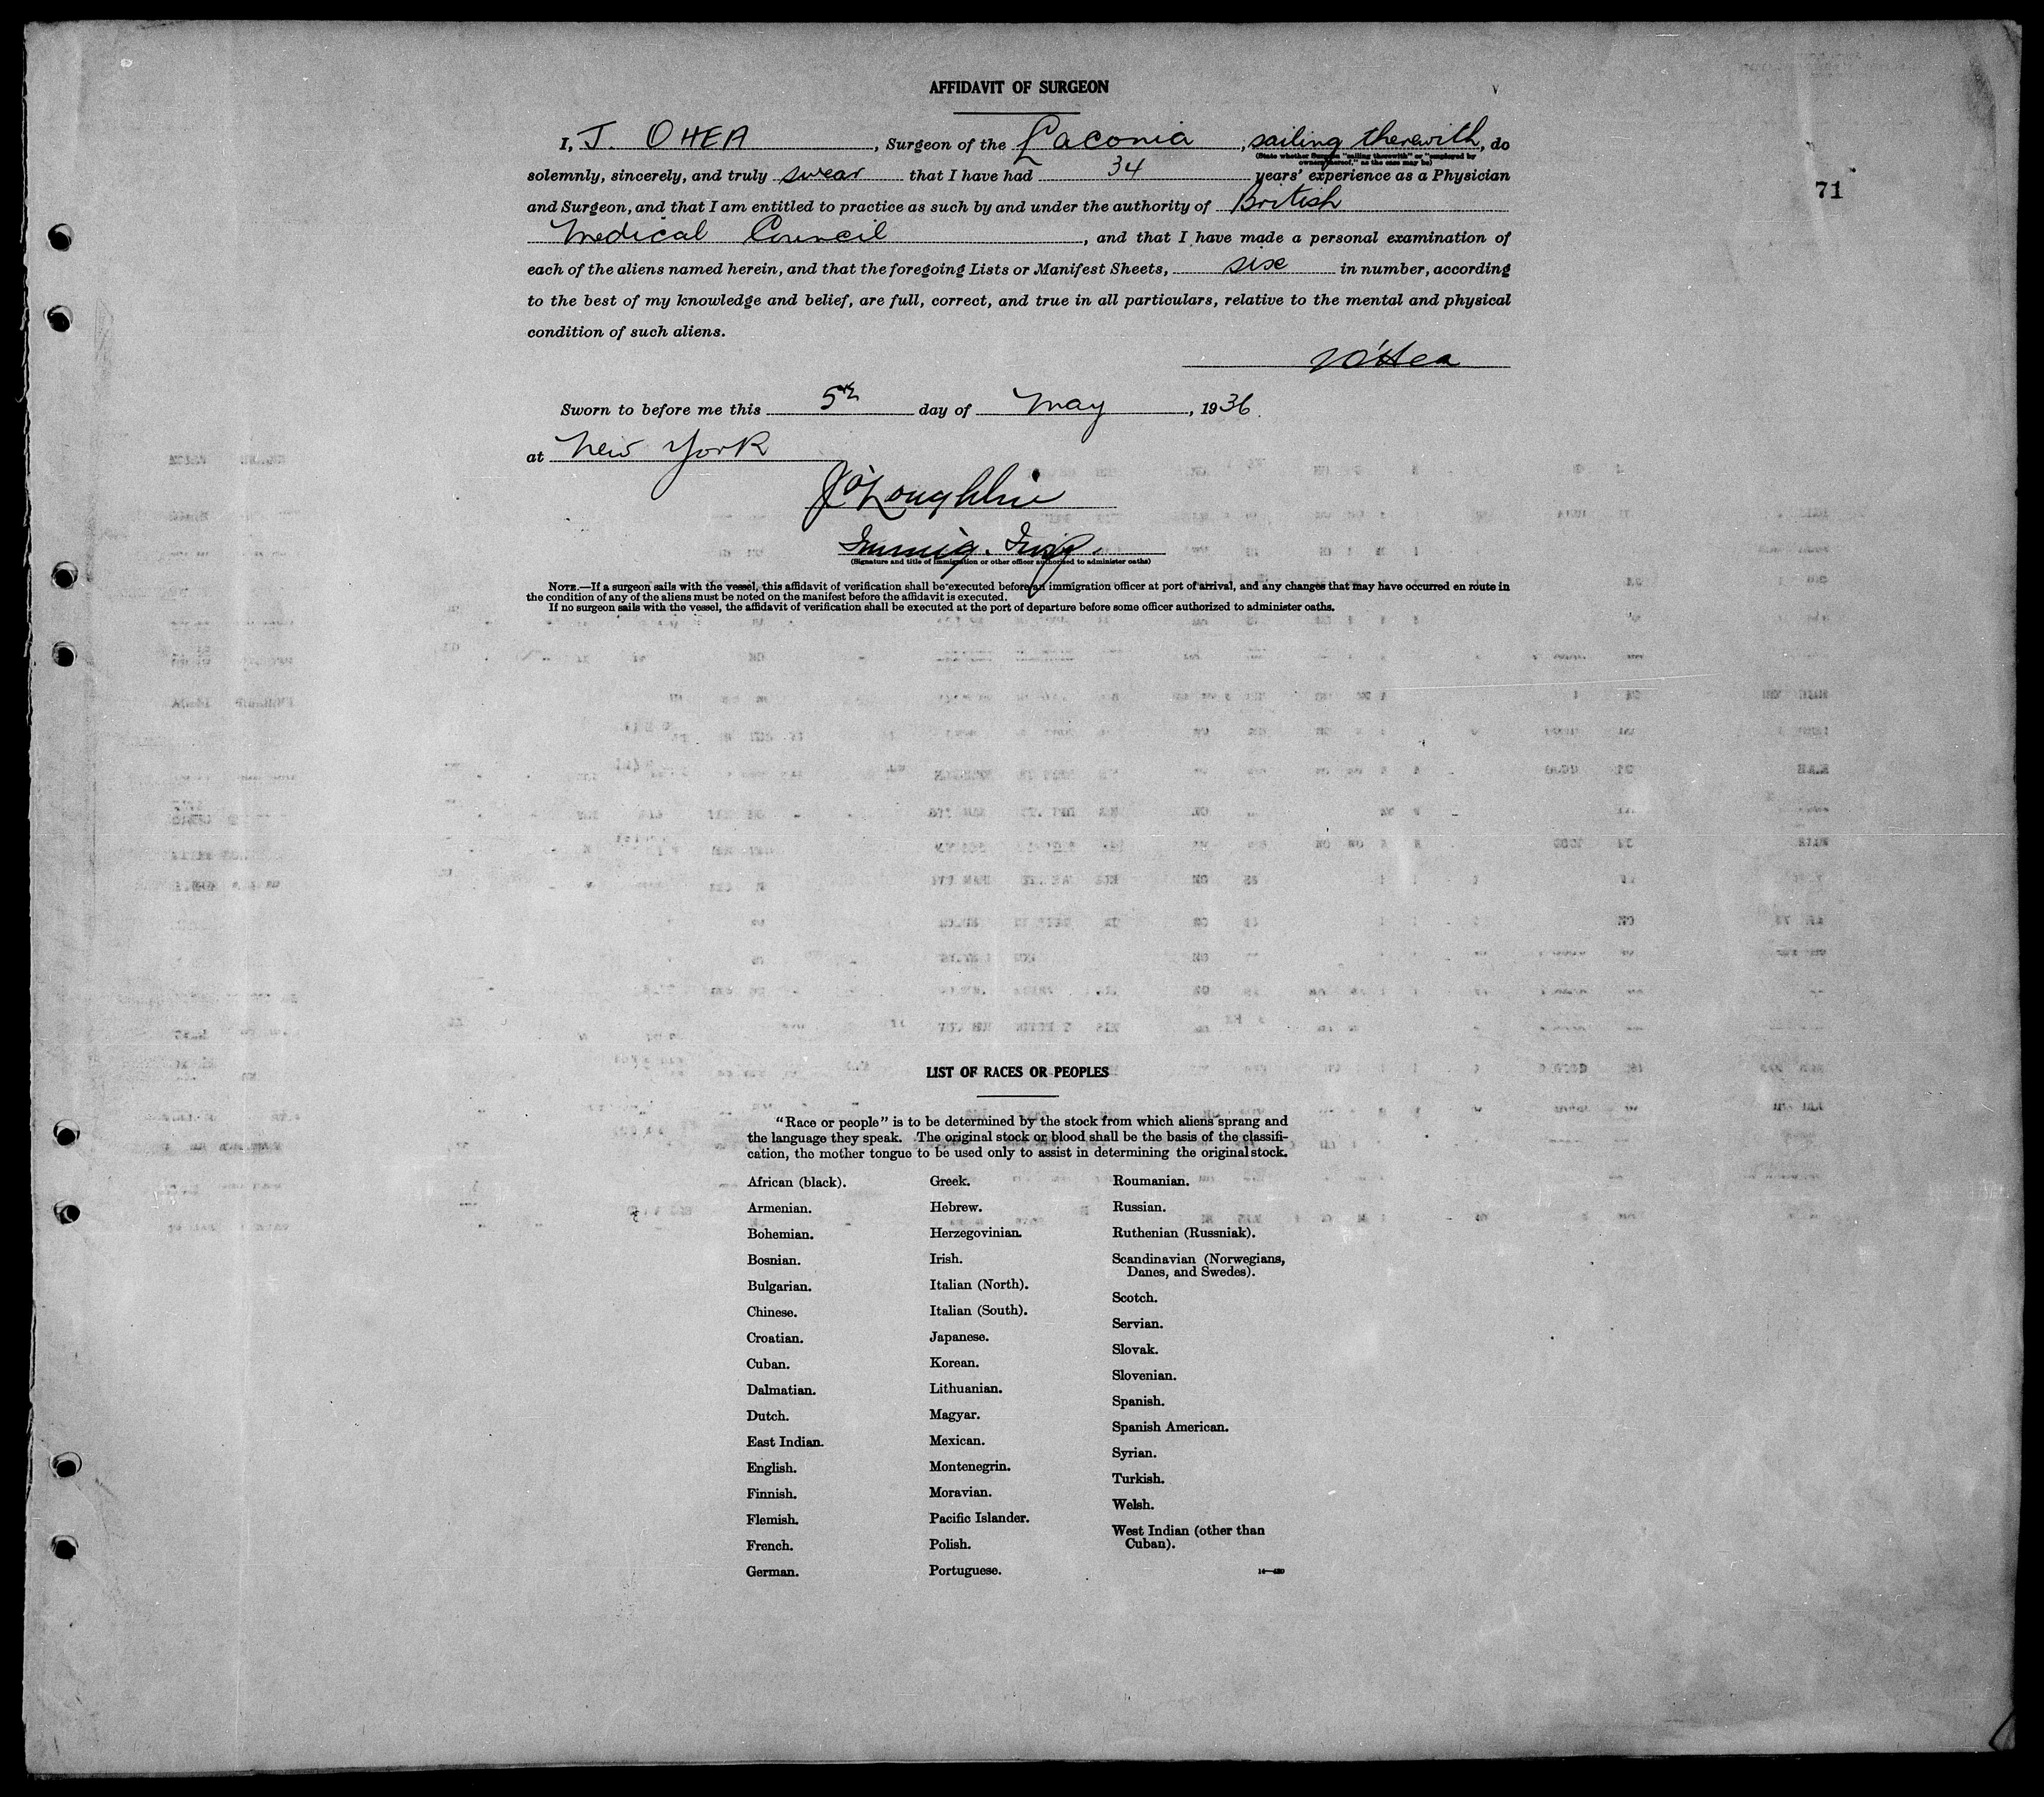 AFFIDAVIT OF SURGEON
I, J. OHEA, Surgeon of the Laconia, sailing therewith, do
(State whether Surgeon "sailing therewith" or "employed by
owners thereof," as the case may be)
solemnly, sincerely, and truly swear that I have had 34 years' experience as a Physician
71
and Surgeon, and that I am entitled to practice as such by and under the authority of British
Medical Council, and that I have made a personal examination of
each of the aliens named herein, and that the foregoing Lists or Manifest Sheets, six in number, according
to the best of my knowledge and belief, are full, correct, and true in all particulars, relative to the mental and physical
condition of such aliens.
J O'Hea
Sworn to before me this 5th day of May, 1936.
at New York
J O'Loughlin
Immig. Insp.
(Signature and title of immigration or other officer authorized to administer oaths)
NOTE.—If a surgeon sails with the vessel, this affidavit of verification shall be executed before an immigration officer at port of arrival, and any changes that may have occurred en route in
the condition of any of the aliens must be noted on the manifest before the affidavit is executed.
If no surgeon sails with the vessel, the affidavit of verification shall be executed at the port of departure before some officer authorized to administer oaths.
LIST OF RACES OR PEOPLES
"Race or people" is to be determined by the stock from which aliens sprang and
the language they speak. The original stock or blood shall be the basis of the classifi-
cation, the mother tongue to be used only to assist in determining the original stock.
African (black).
Armenian.
Bohemian.
Bosnian.
Bulgarian.
Chinese.
Croatian.
Cuban.
Dalmatian.
Dutch.
East Indian.
English.
Finnish.
Flemish.
French.
German.
Greek.
Hebrew.
Herzegovinian.
Irish.
Italian (North).
Italian (South).
Japanese.
Korean.
Lithuanian.
Magyar.
Mexican.
Montenegrin.
Moravian.
Pacific Islander.
Polish.
Portuguese.
Roumanian.
Russian.
Ruthenian (Russniak).
Scandinavian (Norwegians,
Danes, and Swedes).
Scotch.
Servian.
Slovak.
Slovenian.
Spanish.
Spanish American.
Syrian.
Turkish.
Welsh.
West Indian (other than
Cuban).
14—430